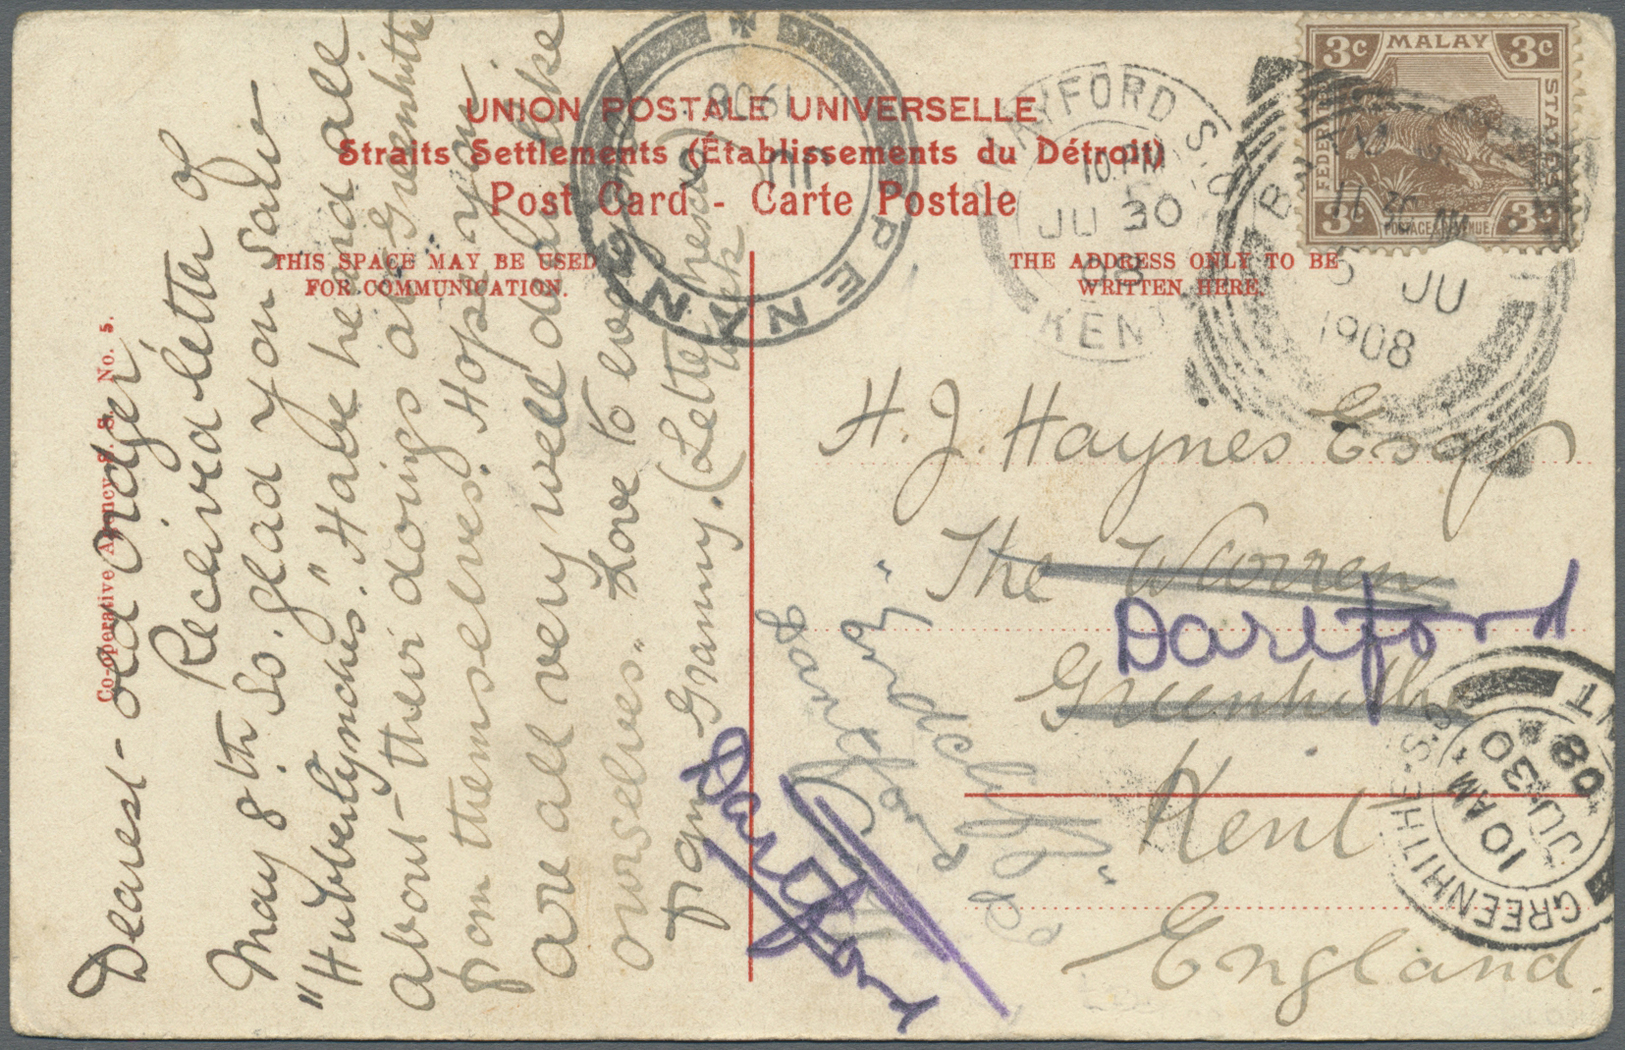 UNION POSTALE UNIVERSELLE
Straits Settlements (Établissements du Détroit)
Post Card - Carte Postale
THIS SPACE MAY BE USED
FOR COMMUNICATION.
THE ADDRESS ONLY TO BE
WRITTEN HERE.
Co-operative Agency S. S. No. 5.
Dearest - old Oidger,
Received letter of
May 8th. So. glad you saw
"Hubberlynches." Have heard all
about - their doings at Greenhithe
from themselves. Hope you
are all very well dear like
ourselves. Love to
from Granny. (Letter
week
H. J. Haynes Esqr
The Warren
Greenhithe
Kent
England.
Dartford
Dartford
Dartford
PENANG
JU
1908
S.O.
10 PM
JU 30
08
KENT
11 30 AM
JU
1908
GREENHITHE S.O.
10 AM
JU 30
08
MALAY
FEDERATED
STATES
3c 3c
3c 3c
POSTAGE & REVENUE